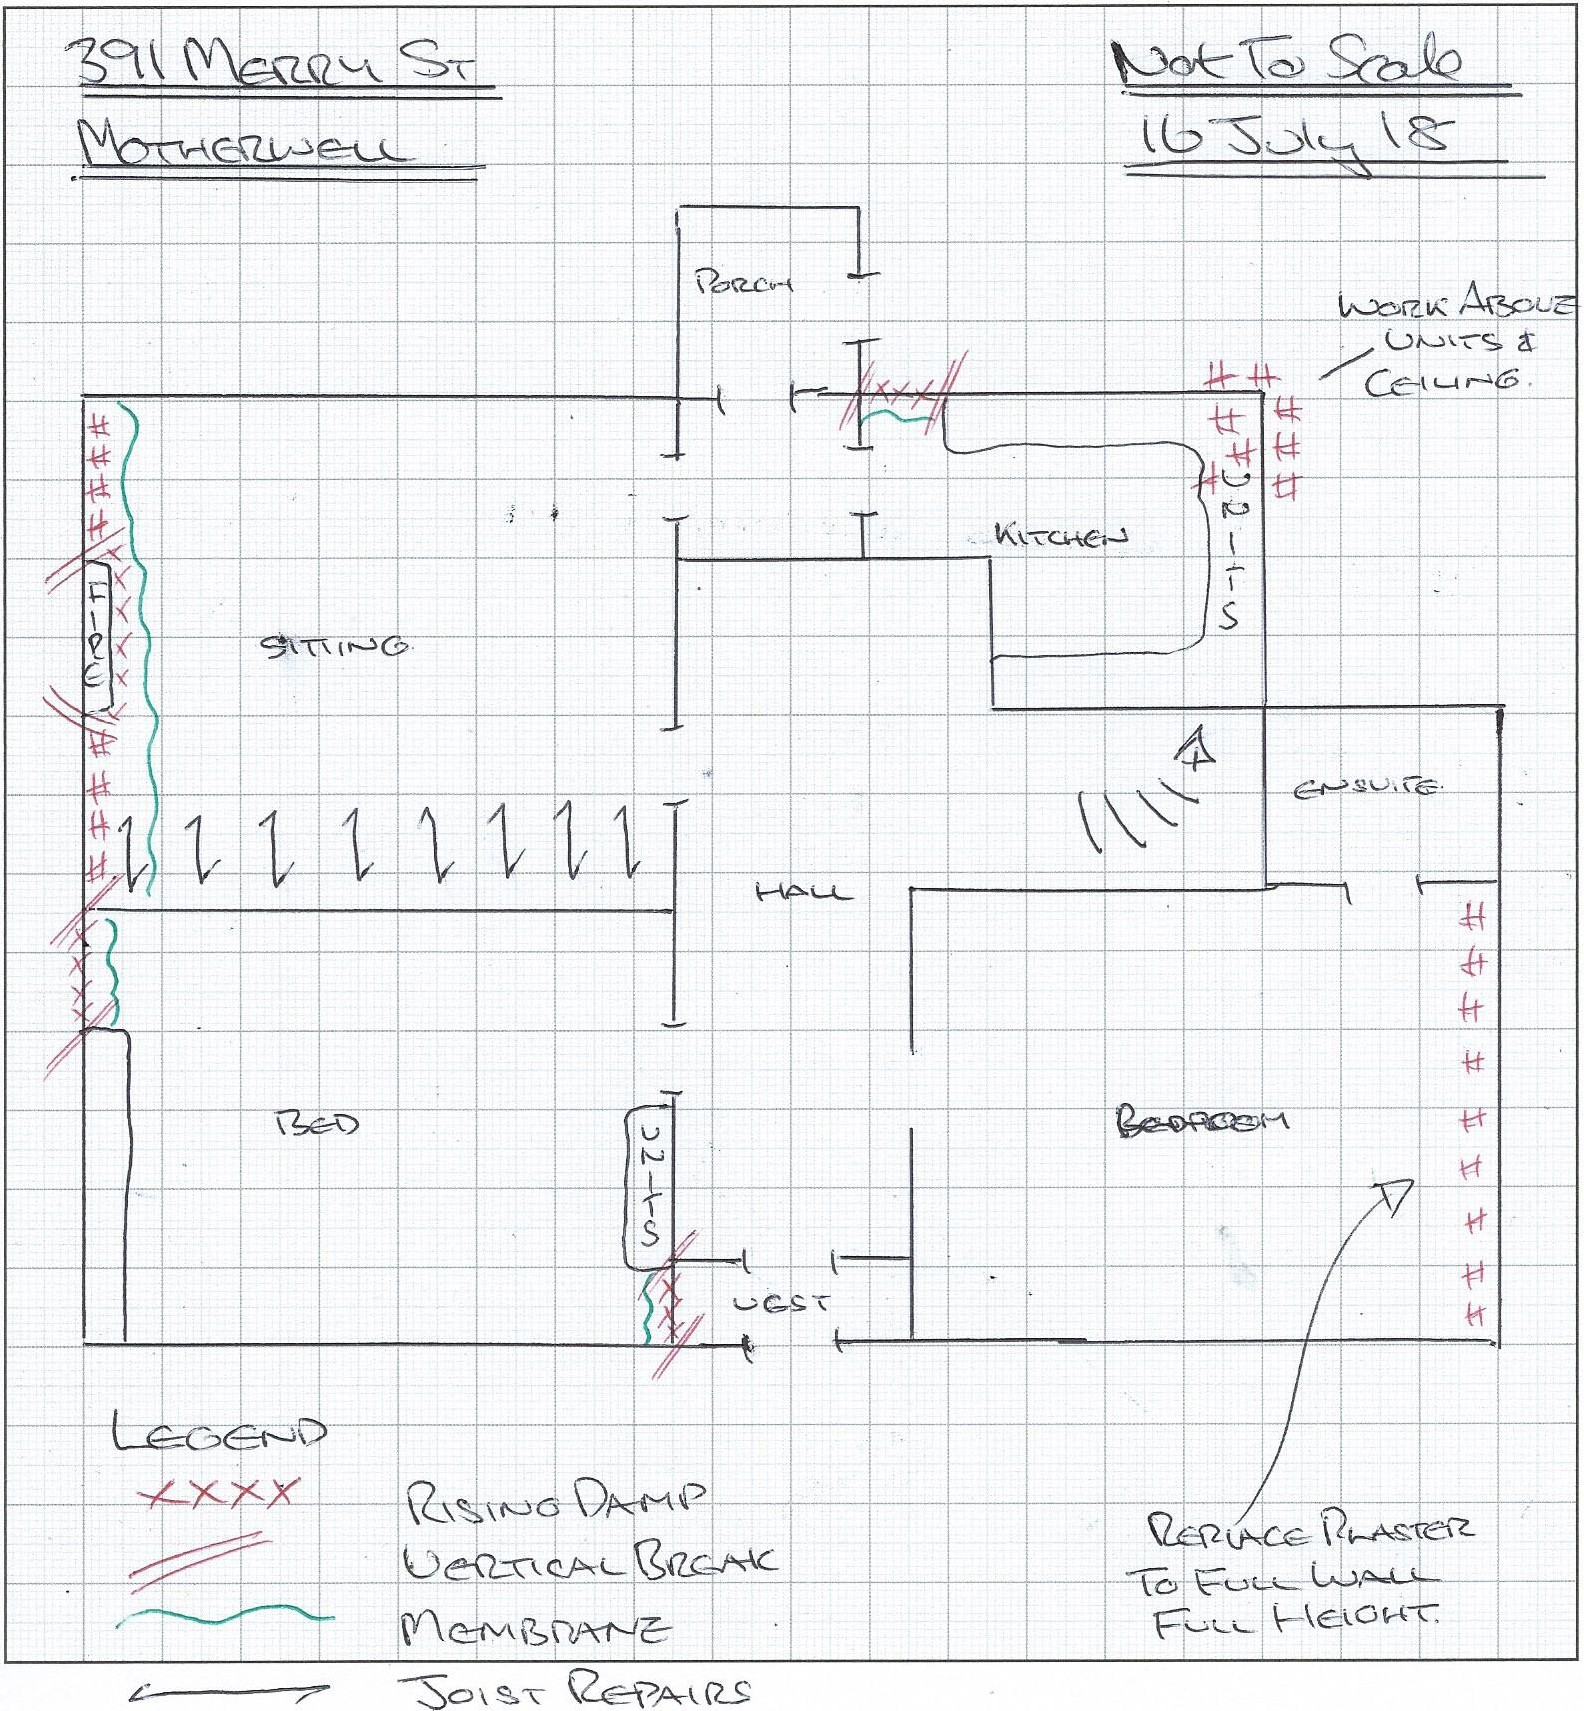 391 MERRY ST
MOTHERWELL
Not To Scale
16 July 18
PORCH
WORK ABOVE
UNITS &
CEILING.
KITCHEN
UNITS
FIRE
SITTING
ENSUITE
HALL
BED
UNITS
BEDROOM
VEST
LEGEND
XXXX RISING DAMP
VERTICAL BREAK
MEMBRANE
JOIST REPAIRS
REPLACE PLASTER
TO FULL WALL
FULL HEIGHT.